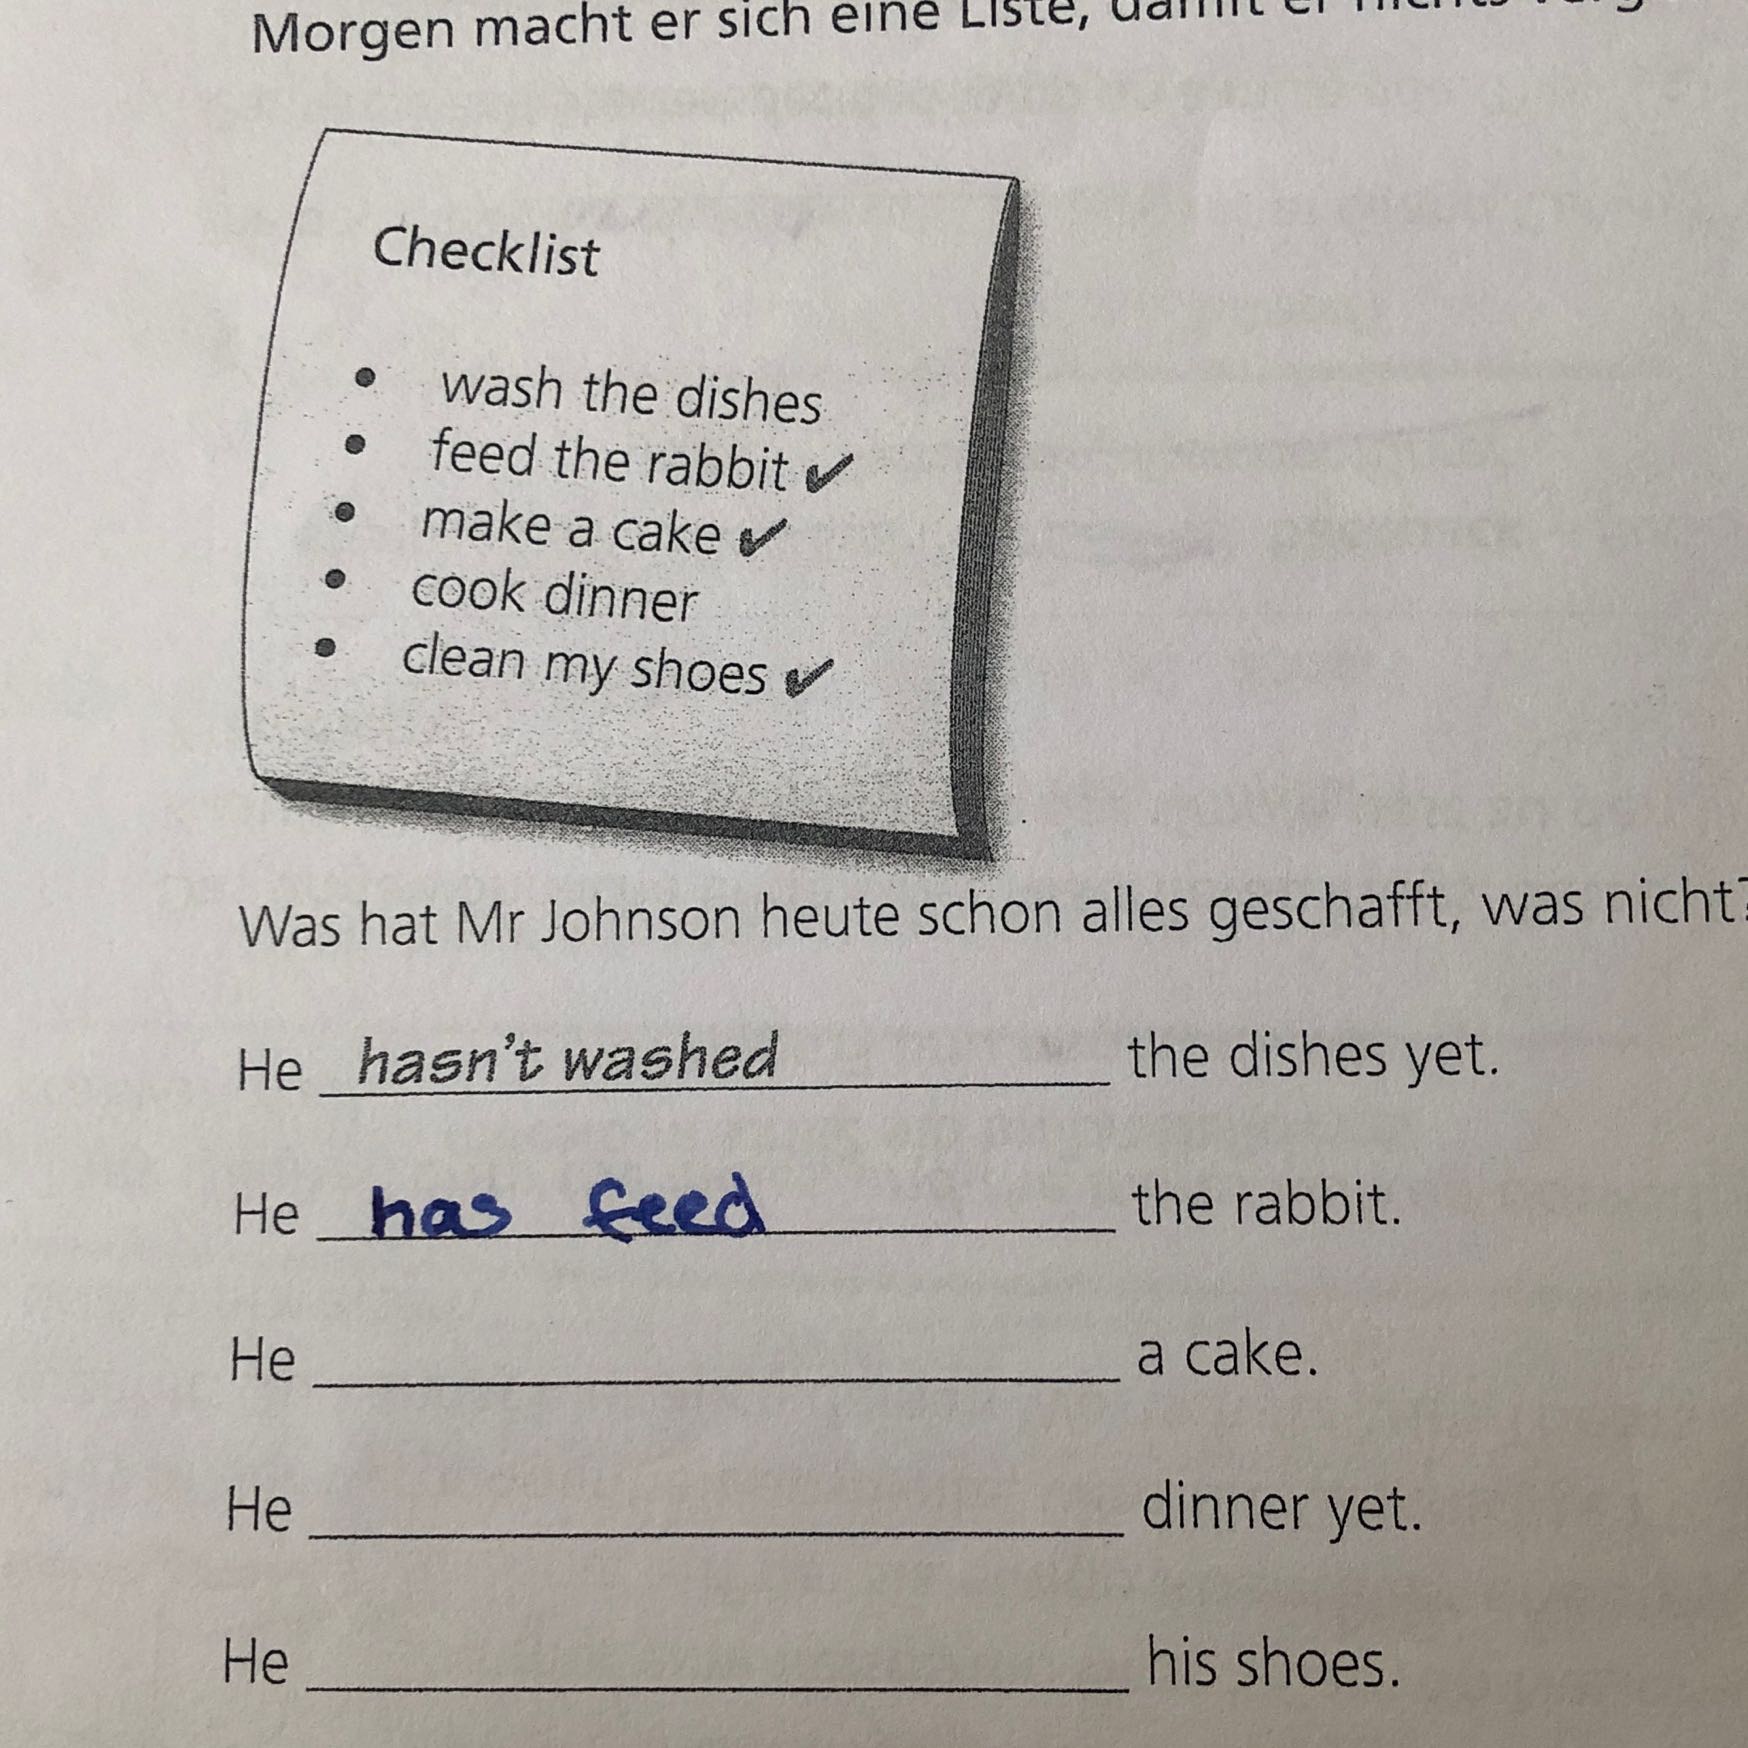 Morgen macht er sich eine Liste, damit er nichts
Checklist
• wash the dishes
• feed the rabbit ✔
• make a cake ✔
• cook dinner
• clean my shoes ✔
Was hat Mr Johnson heute schon alles geschafft, was nicht?
He hasn't washed the dishes yet.
He has feed the rabbit.
He ______ a cake.
He ______ dinner yet.
He ______ his shoes.